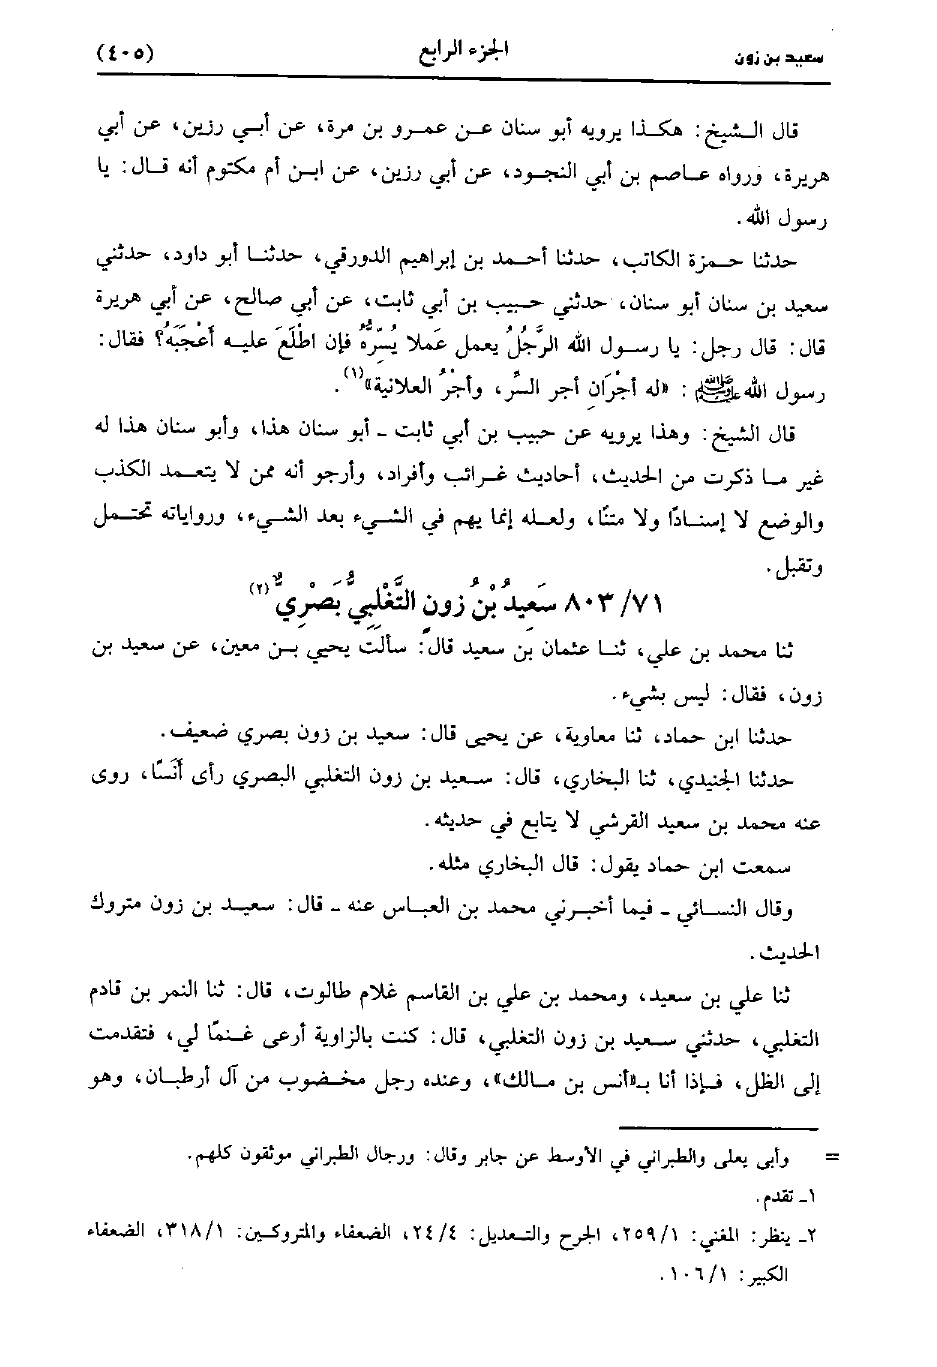 سعيد بن زون الجزء الرابع (٤٠٥)
قال الشيخ: هكذا يرويه أبو سنان عن عمرو بن مرة، عن أبي رزين، عن أبي
هريرة، ورواه عاصم بن أبي النجود، عن أبي رزين، عن ابن أم مكتوم أنه قال: يا
رسول الله.
حدثنا حمزة الكاتب، حدثنا أحمد بن إبراهيم الدورقي، حدثنا أبو داود، حدثني
سعيد بن سنان أبو سنان، حدثني حبيب بن أبي ثابت، عن أبي صالح، عن أبي هريرة
قال: قال رجل: يا رسول الله الرَّجُلُ يعمل عَمَلا يُسِرُّهُ فإن اطلَعَ عليه أعْجَبَهُ؟ فقال:
رسول الله ﷺ: «له أجْرَانِ أجر السِّر، وأجْرُ العلانية»(١).
قال الشيخ: وهذا يرويه عن حبيب بن أبي ثابت - أبو سنان هذا، وأبو سنان هذا له
غير ما ذكرت من الحديث، أحاديث غرائب وأفراد، وأرجو أنه ممن لا يتعمد الكذب
والوضع لا إسنادًا ولا متنًا، ولعله إنما يهم في الشيء بعد الشيء، ورواياته تحتمل
وتقبل.
٧١/ ٨٠٣ سَعِيدُ بْنُ زونٍ التَّغْلِبِيُّ بَصْرِيٌّ(٢)
ثنا محمد بن علي، ثنا عثمان بن سعيد قال: سألت يحيي بن معين، عن سعيد بن
زون، فقال: ليس بشيء.
حدثنا ابن حماد، ثنا معاوية، عن يحيى قال: سعيد بن زون بصري ضعيف.
حدثنا الجنيدي، ثنا البخاري، قال: سعيد بن زون التغلبي البصري رأى أنَسًا، روى
عنه محمد بن سعيد القرشي لا يتابع في حديثه.
سمعت ابن حماد يقول: قال البخاري مثله.
وقال النسائي - فيما أخبرني محمد بن العباس عنه - قال: سعيد بن زون متروك
الحديث.
ثنا علي بن سعيد، ومحمد بن علي بن القاسم غلام طالوت، قال: ثنا النمر بن قادم
التغلبي، حدثني سعيد بن زون التغلبي، قال: كنت بالزاوية أرعى غنمًا لي، فتقدمت
إلى الظل، فإذا أنا بـ«أنس بن مالك»، وعنده رجل مخضوب من آل أرطبان، وهو
= وأبى يعلى والطبراني في الأوسط عن جابر وقال: ورجال الطبراني موثقون كلهم.
١- تقدم.
٢- ينظر: المغني: ٢٥٩/١، الجرح والتعديل: ٢٤/٤، الضعفاء والمتروكين: ٣١٨/١، الضعفاء
الكبير: ١٠٦/١.